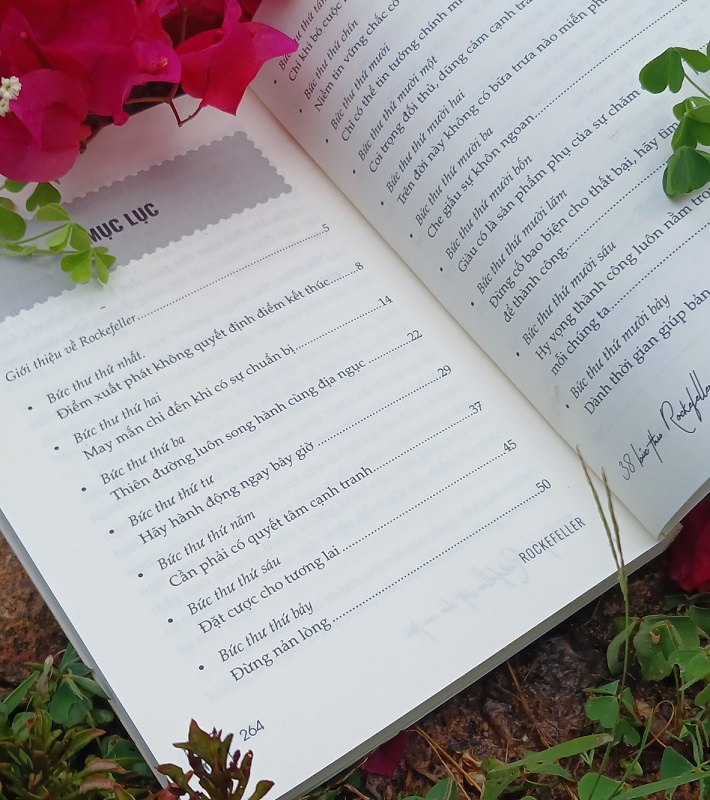 MỤC LỤC
Giới thiệu về Rockefeller 5
• Bức thư thứ nhất.
Điểm xuất phát không quyết định điểm kết thúc 8
• Bức thư thứ hai
May mắn chỉ đến khi có sự chuẩn bị 14
• Bức thư thứ ba
Thiên đường luôn song hành cùng địa ngục 22
• Bức thư thứ tư
Hãy hành động ngay bây giờ 29
• Bức thư thứ năm
Cần phải có quyết tâm cạnh tranh 37
• Bức thư thứ sáu
Đặt cược cho tương lai 45
• Bức thư thứ bảy
Đừng nản lòng 50
264
ROCKEFELLER
Chỉ khi bỏ cuộc
• Bức thư thứ chín
Niềm tin vững chắc
• Bức thư thứ mười
Chỉ có thể tin tưởng chính
• Bức thư thứ mười một
Coi trọng đối thủ, dũng cảm cạnh
• Bức thư thứ mười hai
Trên đời này không có bữa trưa nào miễn
• Bức thư thứ mười ba
Che giấu sự khôn ngoan
• Bức thư thứ mười bốn
Giàu có là sản phẩm phụ của sự chăm
• Bức thư thứ mười lăm
Đừng có bao biện cho thất bại, hãy tìm
để thành công
• Bức thư thứ mười sáu
Hy vọng thành công luôn nằm
mỗi chúng ta
• Bức thư thứ mười bảy
Dành thời gian giúp bản
38 bức thư Rockefeller